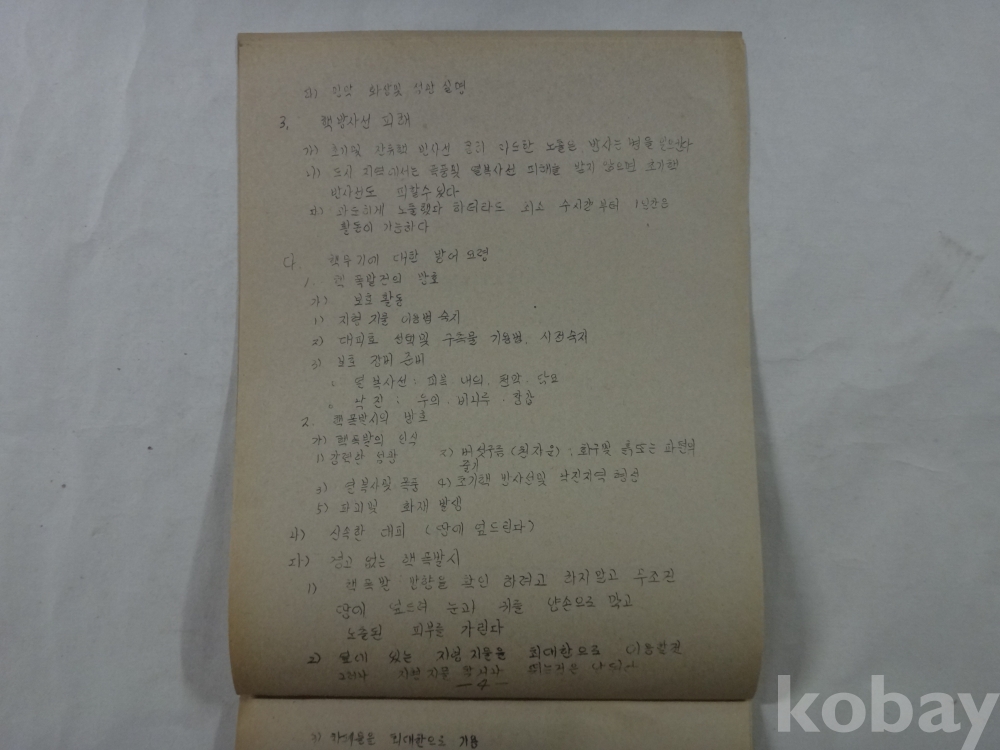 3. 핵방사선 피해
가) 초기및 잔류핵 방사선
나) 도시 지역에서는 폭풍및 열복사선 피해를 받지 않으면 초기핵
방사선도 피할수 있다
다) 과도하게 노출됐다 하더라도 최소 수시간부터 1일간은
활동이 가능하다
다. 핵무기에 대한 방어 요령
1. 핵 폭발전의 방호
가) 보호 활동
1) 지형 지물 이용법 숙지
2) 대피호 선택및 구축물 이용법, 시정숙지
3) 보호 장비 준비
열 복사선 : 피복. 내의. 천막. 담요
낙진 : 우의. 비닐루. 장갑
2. 핵폭발시의 방호
가) 핵폭발의 인식
1) 강렬한 섬광 2) 버섯구름 (원자운) : 화구및
줄기
3) 열복사및 폭풍 4) 초기핵 방사선및 낙진지역 형성
5) 파괴및 화재 발생
나) 신속한 대피 (땅에 엎드린다)
다) 경고 없는 핵폭발시
1) 핵폭발 방향을 확인 하려고 하지말고 무조건
땅에 엎드려 눈과 귀를 양손으로 막고
노출된 피부를 가린다
2) 옆에 있는 지형 지물을 최대한으로 이용할것
그러나 지형 지물
- 4 -
3) 최대한으로 이용
kobay